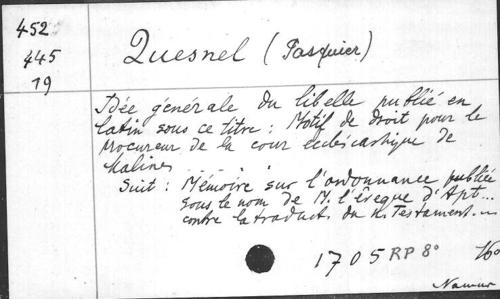 452
445
19
Quesnel (Pasquier)
Idée générale du libelle publié en
latin sous ce titre : Motif de droit pour le
Procureur de la cour ecclésiastique de
Malines .....
Suit : Mémoire sur l'ordonnance publiée
sous le nom de M. l'évêque d'Apt...
contre la traduct. du N. Testament...
1705 RP 8° 16°
Namur